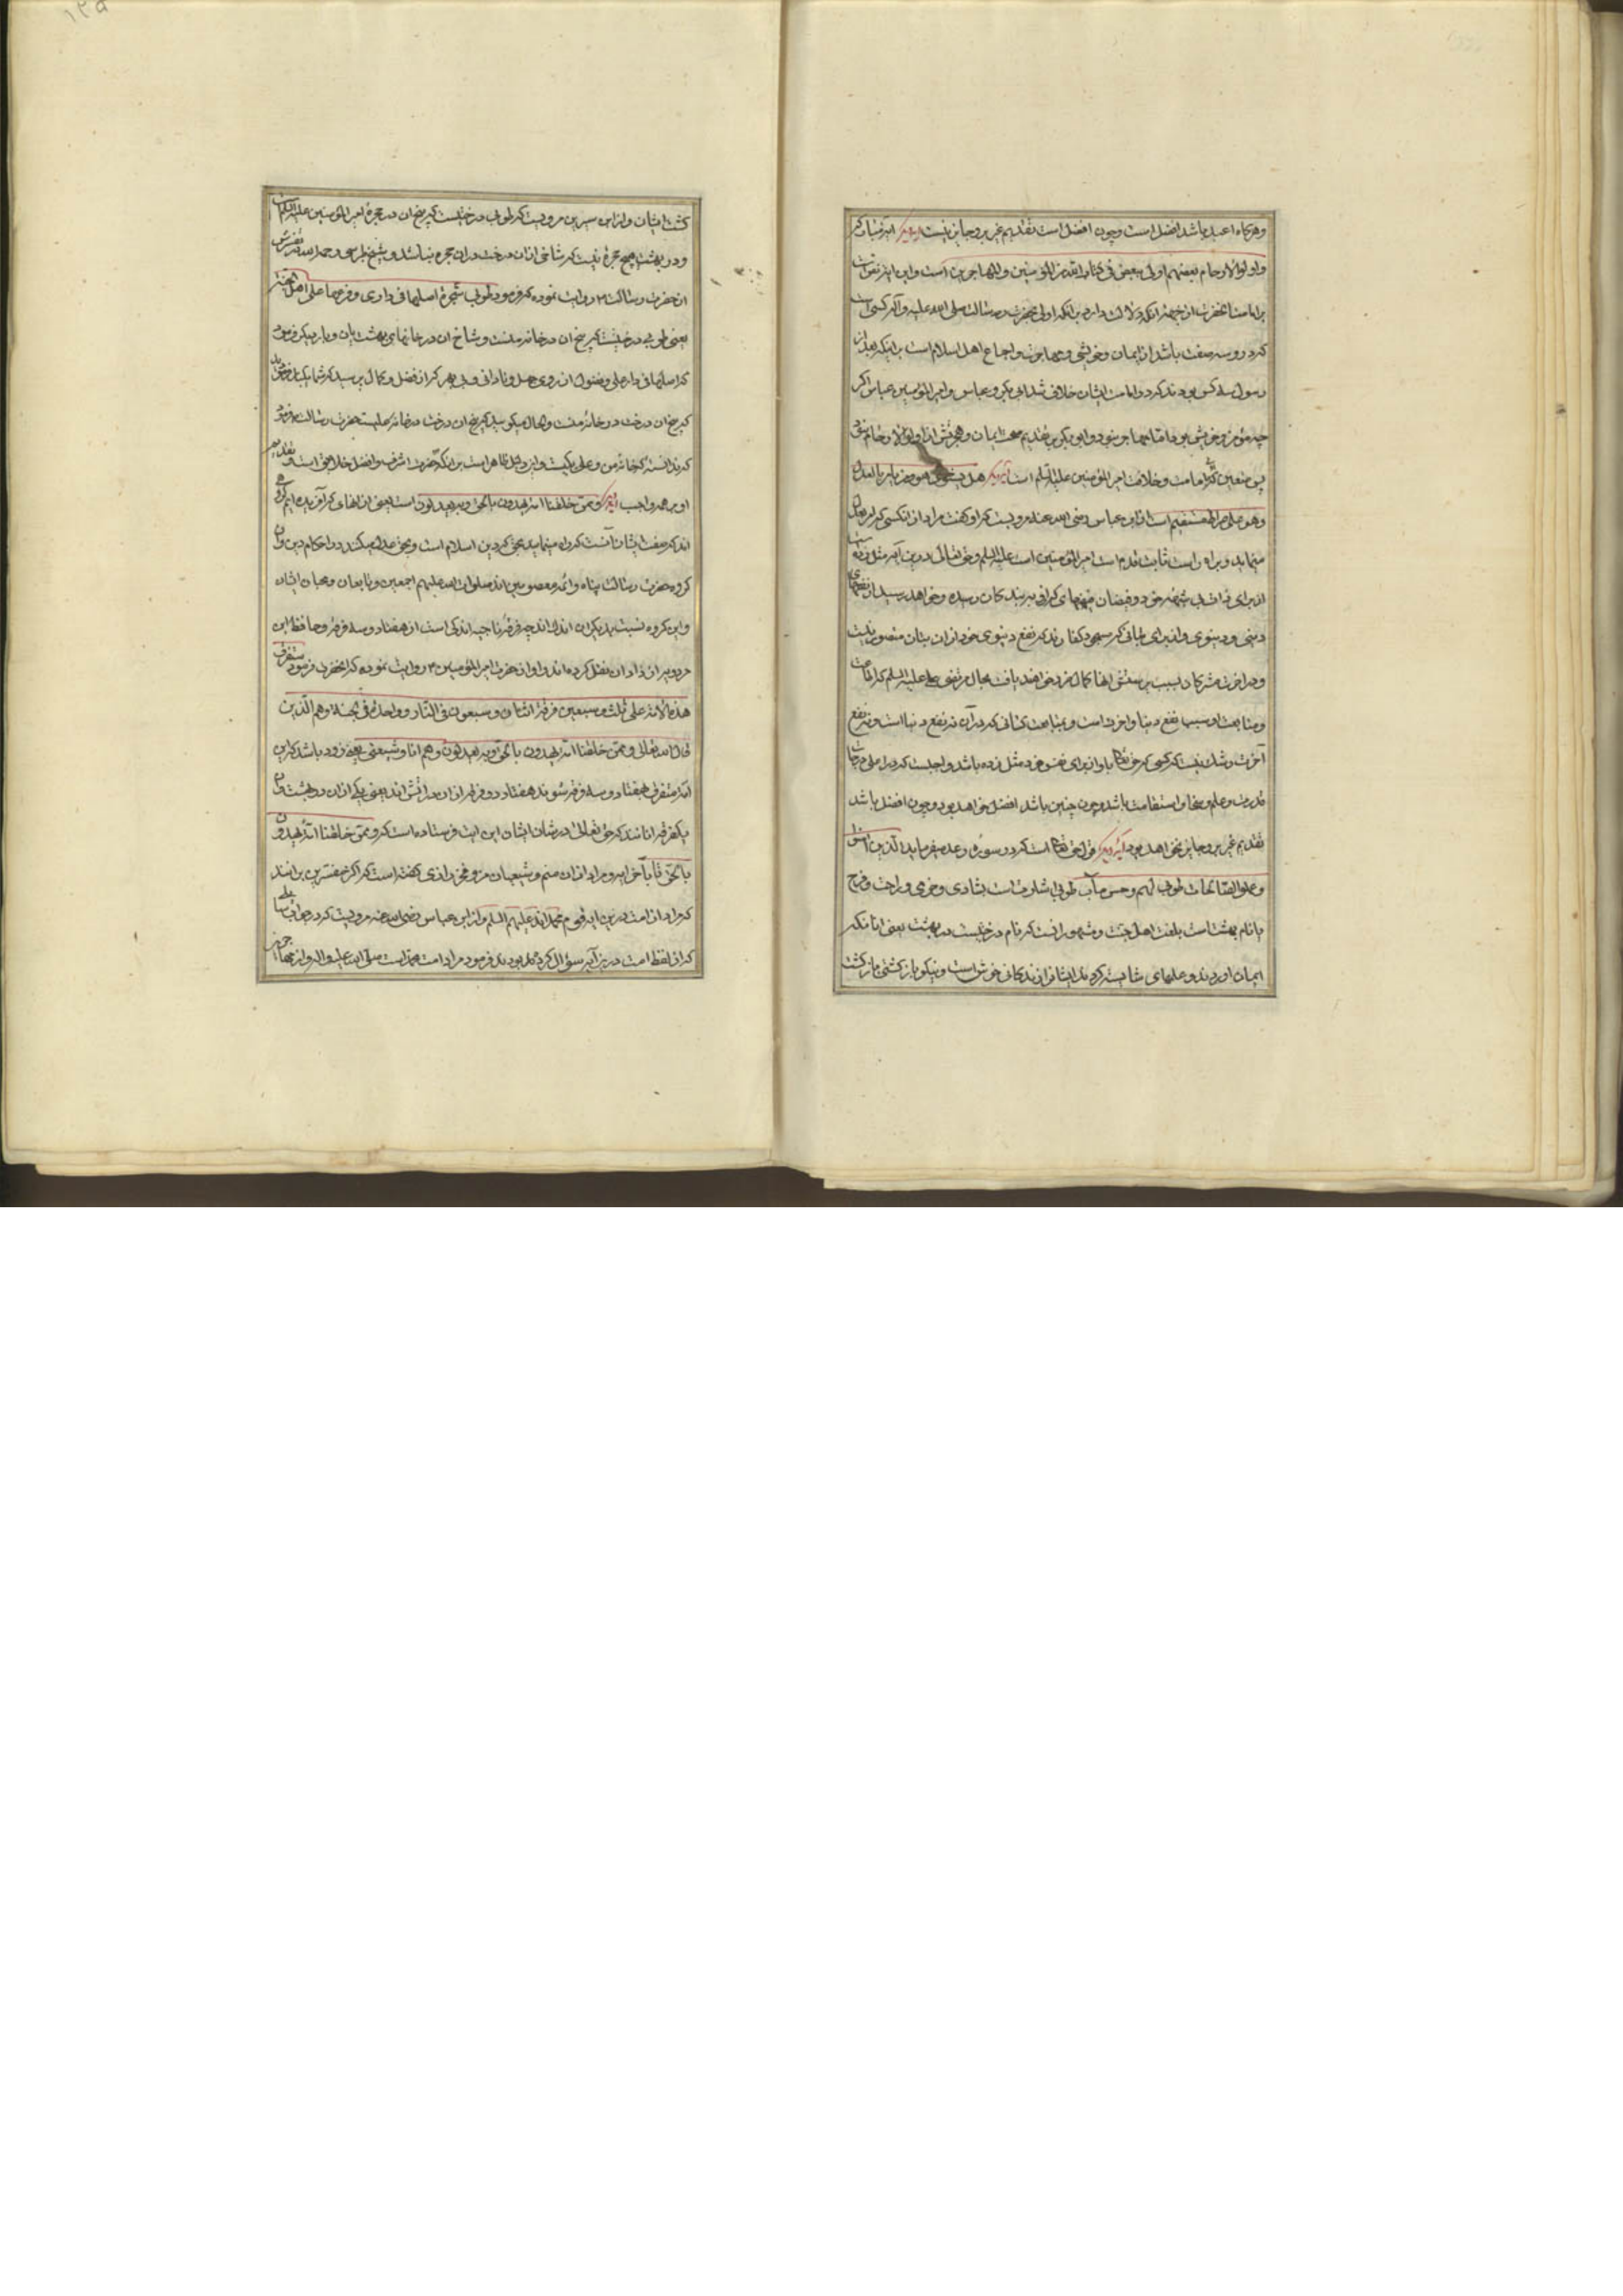 وهرکاه اعبد باشد افضل است وچون افضل است تقدیم غیر برو جایز نیست
واولوا الارحام بعضهم اولی ببعض فی کتاب الله من المؤمنین والمهاجرین است واین
بر امامت انحضرت از جهة انکه دلالت دارد برانکه اولی بحضرت رسالت صلی الله علیه وآله کسی است
که درو سه صفت باشد از ایمان وخویشی ومهاجرت واجماع اهل اسلام است براینکه بعد از
رسول سه کس بودند که در امامت ایشان خلاف شد ابی بکر وعباس وامیر المؤمنین عباس اکر
چه مؤمن وخویش بود اما مهاجر نبود وابو بکر بر تقدیم صحت ایمان وهجرتش از اولوا الارحام
پس متعین امامت وخلافت امیر المؤمنین علیه السلم است هل یستوی هو ومن یامر بالعدل
وهو علی صراط مستقیم است از ابن عباس رضی الله عنه مرویست که او کفت مراد از انکسی که امر بعدل
مینماید وبراه راست ثابت قدم است امیر المؤمنین است علیه السلم وحق تعالی درین آیه مثل
از برای ذات خود وفیضان که از بندکان رسیده وخواهد رسید از
دینی ودنیوی واز برای بتانی که مسجود کفارند که نفع دنیوی خود از ان بتان متصور نیست
ودر اخرت مشرکان بسبب پرستش انها
ومتابعت او سبب نفع دنیا واخرت است وبمتابعت کسانی که در آن نه نفع دنیا است ونه نفع
آخرت وشک نیست که کسی که حق تعالی با او از برای نفس خود مثل زده باشد واجبست که در اعلی درجات
قدرت وعلم وسخا واستقامت باشد وچون چنین باشد افضل خواهد بود وچون افضل باشد
تقدیم غیر برو جایز نخواهد بود قول حق تعالی است که در سوره رعد میفرماید الذین امنوا
وعملوا الصالحات طوبی لهم وحسن مآب طوبی اشارتست بشادی وخرمی وراحت وفرح
یا نام بهشت است بلغت اهل وشهور انست که نام درختیست در بهشت یعنی انانکه
ایمان اوردند وعملهای شایسته کردند ایشانرا زندکانی خوش است ونیکو بازکشتی بازکشت
کشت ایشان واز ابن سیرین مرویست که طوبی درختیست که بیخ ان در حجرهٔ امیر المؤمنین علیه السلام است
ودر بهشت هیچ حجرهٔ نیست که شاخی از ان درخت دران حجره نباشد وشیخ طبرسی رحمه الله در تفسیرش
از حضرت رسالت روایت نموده که فرمود طوبی شجرة اصلها فی داری وفرعها علی اهل الجنة
یعنی طوبی درختیست که بیخ ان در خانه منست وشاخ ان در خانهای بهشت یان وبار دیکر فرمود
که اصلها فی دار علی وفضول از روی جهل ونادانی
که بیخ ان درخت در خانه منست والحال میکویید که بیخ ان درخت در خانه علیست حضرت رسالت فرمود
که ندانستهٔ که خانه من وعلی یکیست واین دلیل ظاهر است برانکه حضرت اشرف وافضل خلایق است وتقدیم
او بر همه واجب وممن خلقنا امة یهدون بالحق وبه یعدلون است یعنی از انهای که آفریده ایم کروهی
اند که صفت ایشان آنست که راه مینمایند بحق که دین اسلام است وبحق عدل میکنند در احکام دین وان
کروه حضرت رسالت پناه وائمه معصومین اند صلوات الله علیهم اجمعین وتابعان ومحبان ایشان
واین کروه نسبت بدیکران اندک اند چه فرقهٔ ناجیه اندکی است از هفتاد وسه فرقه وحافظ ابن
مردویه از زاذان نقل کرده اند واو از حضرت امیر المؤمنین روایت نموده که انحضرت فرمود ستفترق
هذه الامة علی ثلث وسبعین فرقة اثنتان وسبعون فی النار وواحدة فی الجنة وهم الذین
قال الله تعالی وممن خلقنا امة یهدون بالحق وبه یعدلون وهم انا وشیعتی یعنی زود باشد که این
امة متفرق بهفتاد وسه فرقه شوند هفتاد دو فرقه از ان در اتش اند یعنی یکی ازان در بهشت وان
یکفرقه انانند که حق تعالی در شان ایشان این ایت فرستاده است که وممن خلقنا امة یهدون
بالحق تا بآخر ایه ومراد از ان منم وشیعیان من وفخر رازی کفته است که اکثر مفسرین برانند
که مراد از امت درین ایه قوم محمد اند علیهم السلم واز ابن عباس رضی الله عنه مرویست که در جواب
که از لفظ امت درین آیه سؤال کرده بودند فرمود مراد امت محمد است صلی الله علیه واله